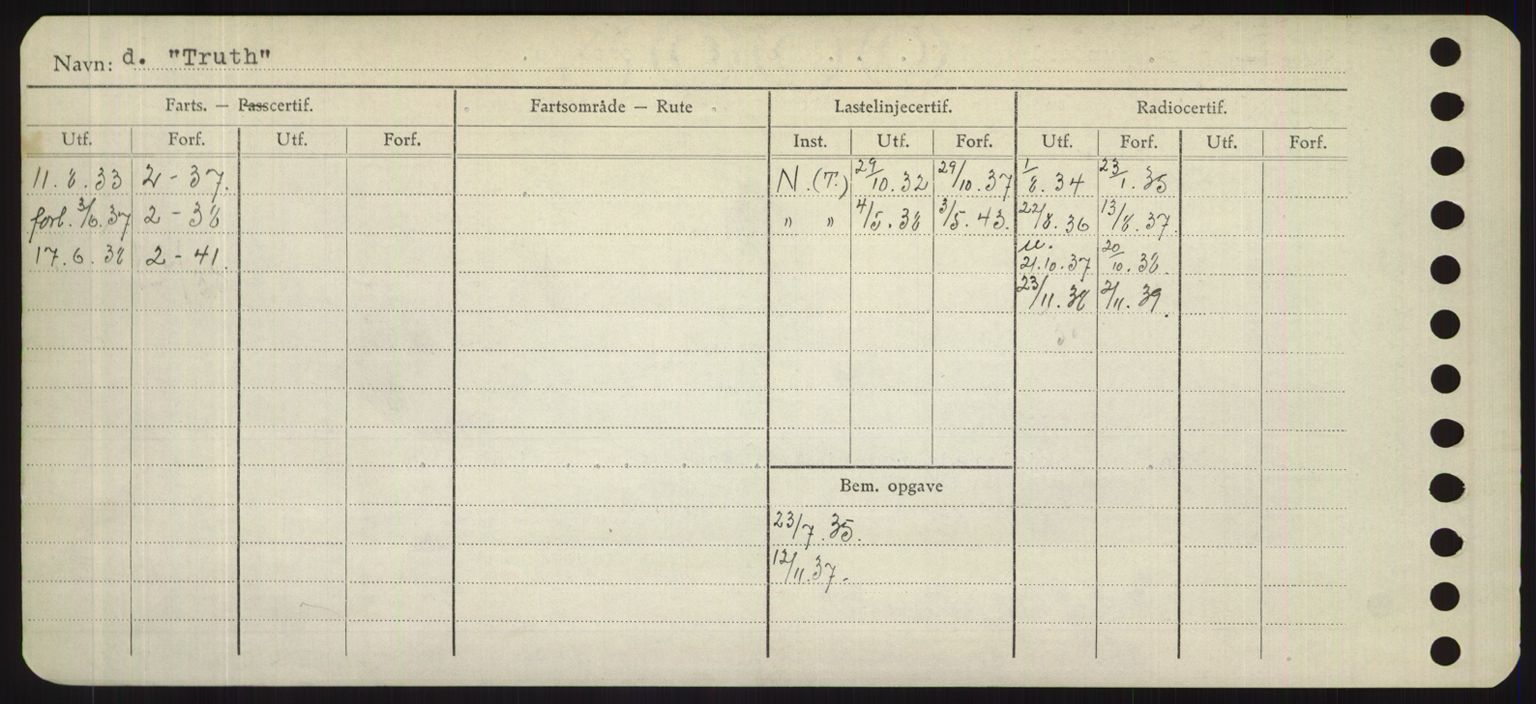 Navn: d. "Truth"
Farts. — Passcertif. Fartsområde — Rute Lastelinjecertif. Radiocertif.
Utf. Forf. Utf. Forf. Inst. Utf. Forf. Utf. Forf. Utf. Forf.
11.8.33 2-37. N.(T.) 29/10.32 29/10.37 1/8.34 23/1.35
forl. 3/6.37 2-38 " " 4/5.38 3/5.43. 22/8.36 13/8.37.
17.6.38 2-41. u. 21.10.37 20/10.38.
23/11.38 2/11.39.
Bem. opgave
23/7.35.
12/11.37.